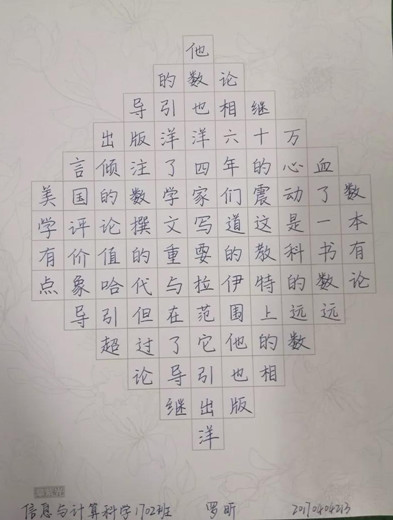 他
的数论
导引也相继
出版洋洋六十万
言倾注了四年的心血
美国的数学家们震动了数
学评论撰文写道这是一本
有价值的重要的教科书有
点象哈代与拉伊特的数论
导引但在范围上远远
超过了它他的数
论导引也相
继出版
洋
信息与计算科学1702班 罗昕 2017040423